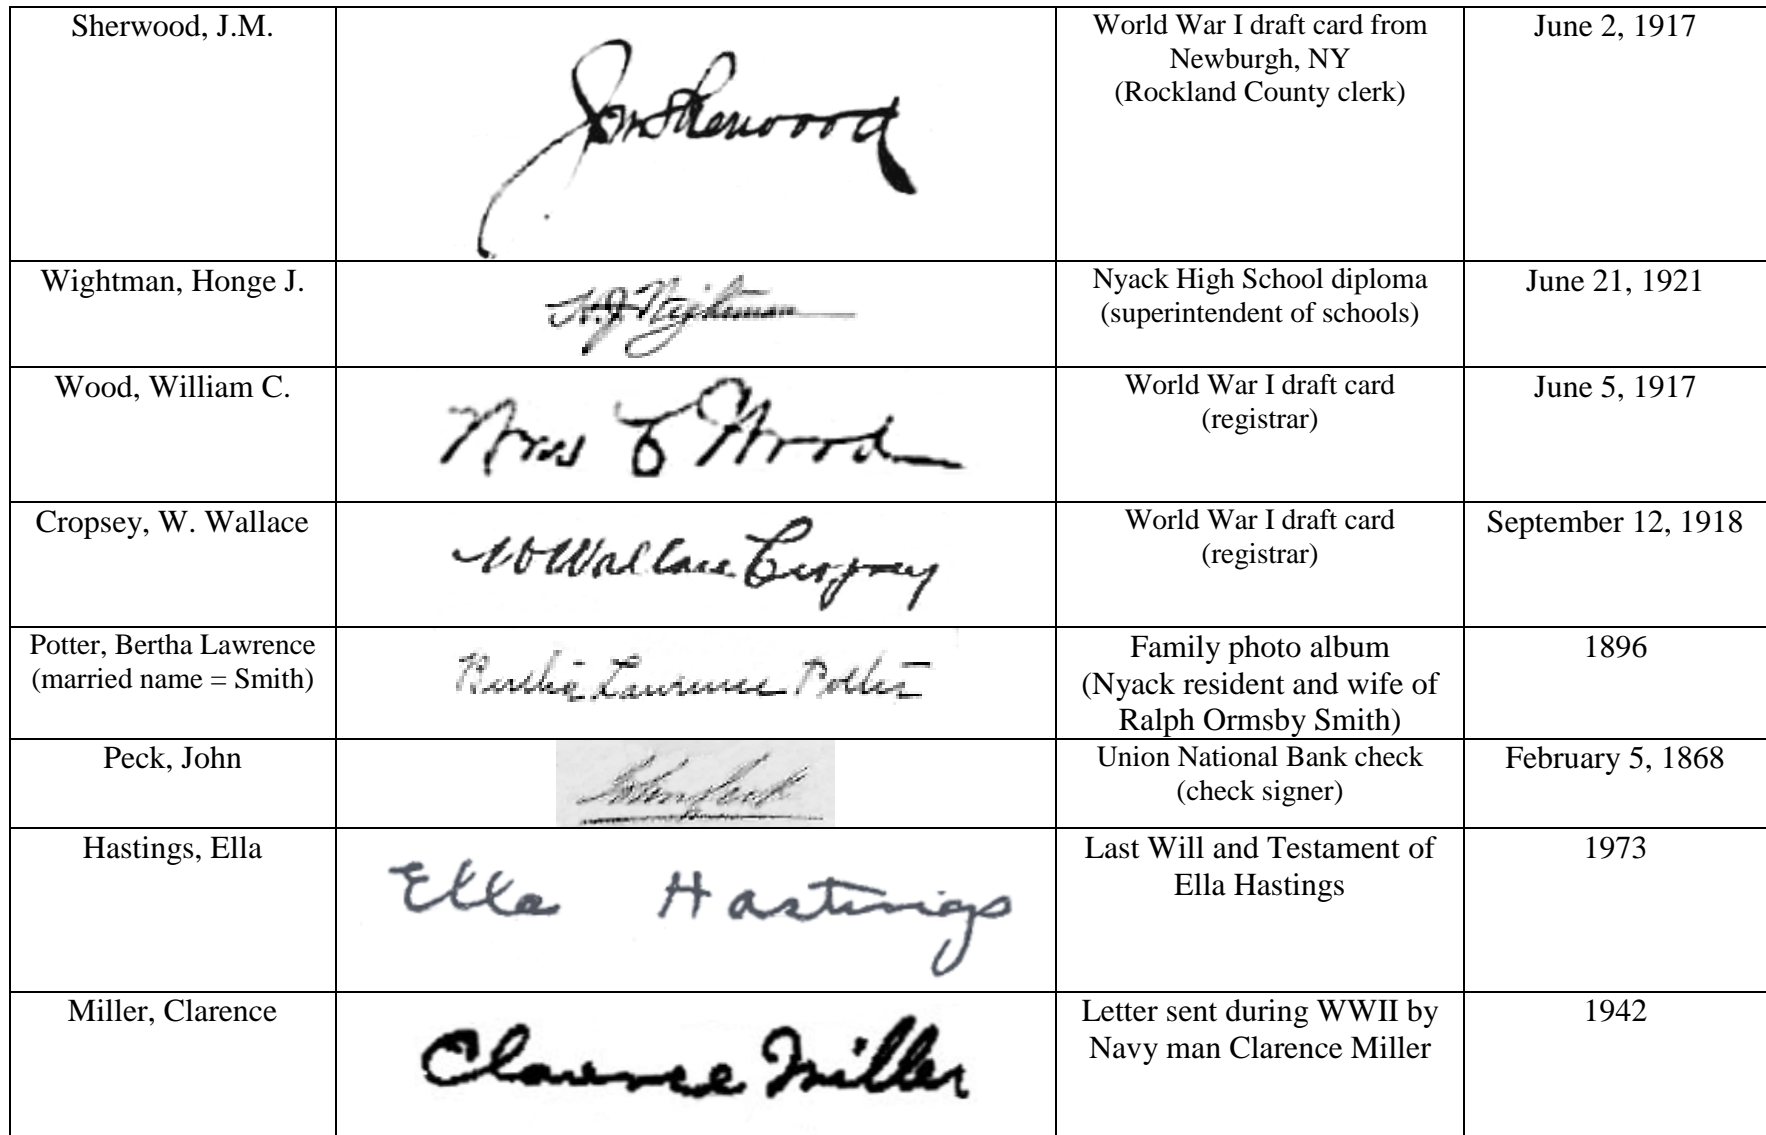 Sherwood, J.M.
JM Sherwood
World War I draft card from
Newburgh, NY
(Rockland County clerk)
June 2, 1917
Wightman, Honge J.
H.J. Wightman
Nyack High School diploma
(superintendent of schools)
June 21, 1921
Wood, William C.
Wm C Wood
World War I draft card
(registrar)
June 5, 1917
Cropsey, W. Wallace
W Wallace Cropsey
World War I draft card
(registrar)
September 12, 1918
Potter, Bertha Lawrence
(married name = Smith)
Bertha Lawrence Potter
Family photo album
(Nyack resident and wife of
Ralph Ormsby Smith)
1896
Peck, John
John Peck
Union National Bank check
(check signer)
February 5, 1868
Hastings, Ella
Ella Hastings
Last Will and Testament of
Ella Hastings
1973
Miller, Clarence
Clarence Miller
Letter sent during WWII by
Navy man Clarence Miller
1942